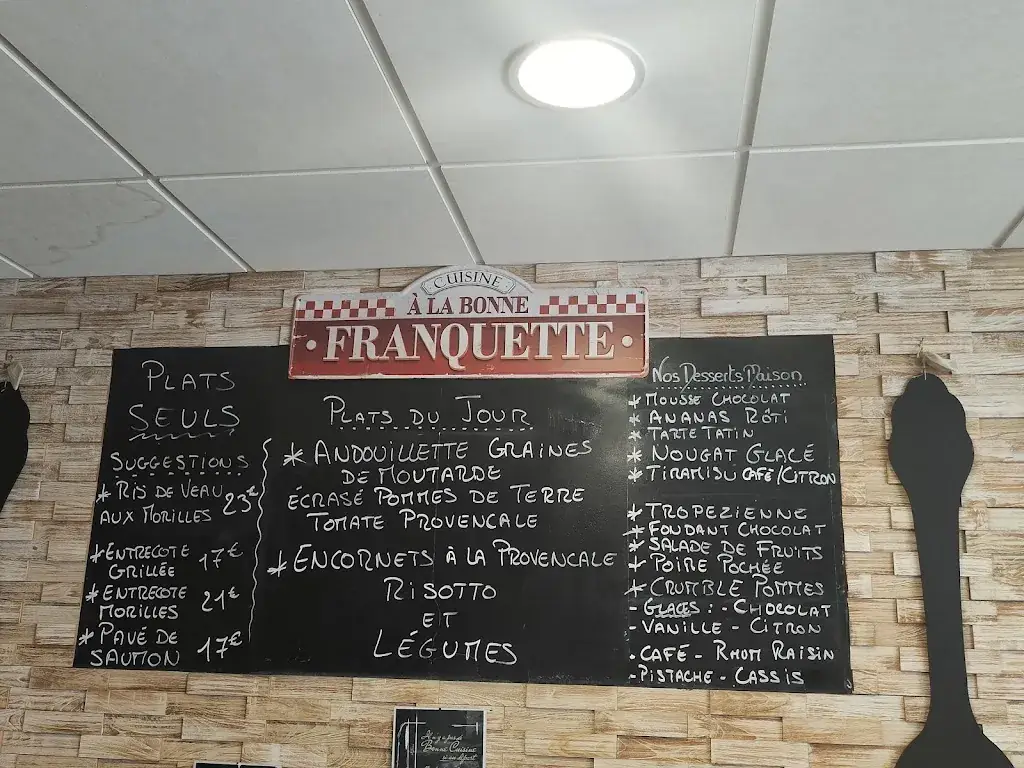 CUISINE
À LA BONNE
• FRANQUETTE •
PLATS
SEULS
SUGGESTIONS
* RIS DE VEAU 23€
AUX MORILLES
* ENTRECOTE 17€
GRILLÉE
* ENTRECOTE 21€
MORILLES
* PAVÉ DE 17€
SAUMON
PLATS DU JOUR
* ANDOUILLETTE GRAINES
DE MOUTARDE
ÉCRASÉ POMMES DE TERRE
TOMATE PROVENCALE
* ENCORNETS À LA PROVENCALE
RISOTTO
ET
LÉGUMES
Nos Desserts Maison
* MOUSSE CHOCOLAT
* ANANAS RÔTI
* TARTE TATIN
* NOUGAT GLACÉ
* TIRAMISU CAFÉ/CITRON
* TROPEZIENNE
* FONDANT CHOCOLAT
* SALADE DE FRUITS
* POIRE POCHÉE
* CRUMBLE POMMES
- GLACES : - CHOCOLAT
- VANILLE - CITRON
- CAFÉ - RHUM RAISIN
- PISTACHE - CASSIS
Bonne Cuisine